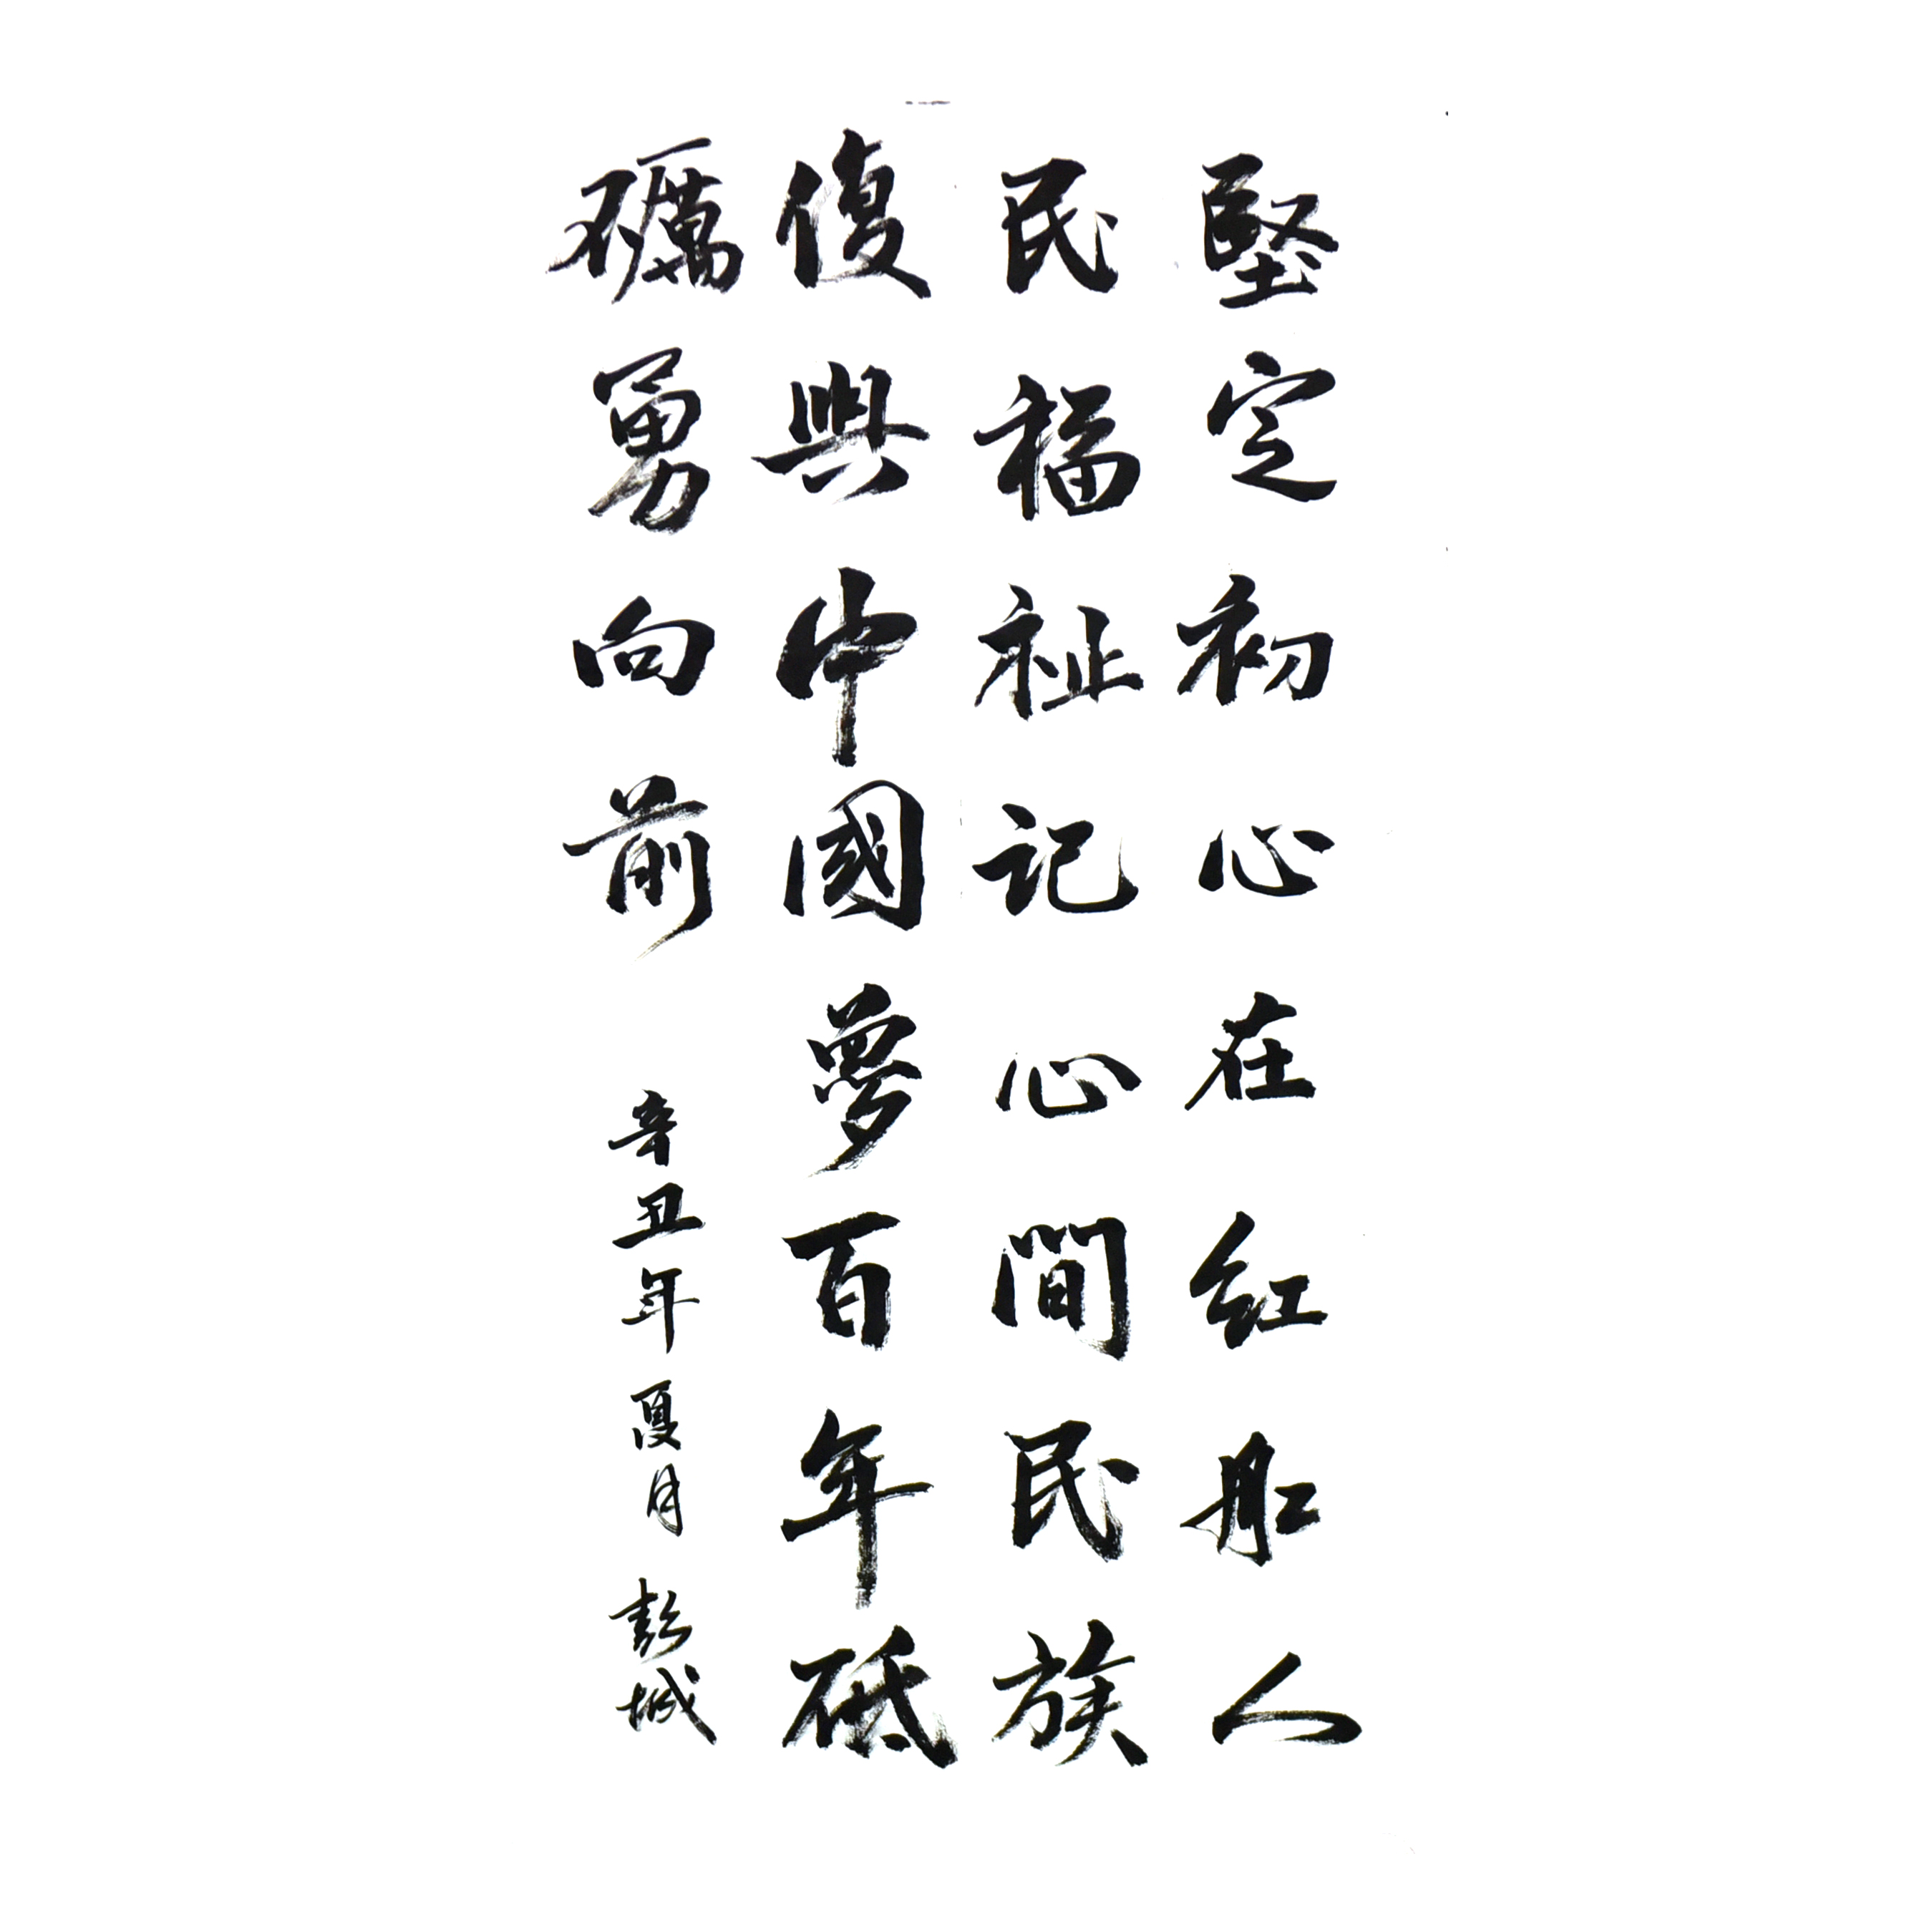 堅定初心在红船人
民福祉记心間民族
復興中國夢百年砥
礪勇向前
辛丑年夏月彭城